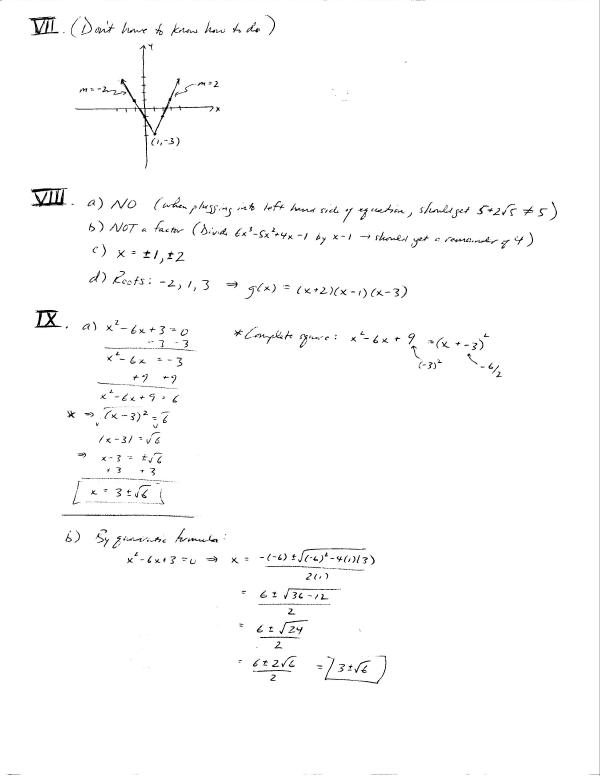 VII. (Don't have to know how to do)
y
m=-2
m=2
x
(1,-3)
VIII. a) NO (when plugging into left hand side of equation, should get 5+2√5 ≠ 5)
b) NOT a factor (Divide 6x³-5x²+4x-1 by x-1 → should get a remainder of 4)
c) x = ±1, ±2
d) Roots: -2, 1, 3 ⇒ g(x) = (x+2)(x-1)(x-3)
IX. a) x²-6x+3=0
-3 -3
x²-6x = -3
+9 +9
x²-6x+9 = 6
* ⇒ √(x-3)² = √6
|x-3| = √6
⇒ x-3 = ±√6
+3 +3
x = 3±√6
* Complete square: x²-6x+9 = (x+-3)²
(-3)²
-6/2
b) By quadratic formula:
x²-6x+3=0 ⇒ x = -(-6) ± √(-6)²-4(1)(3)
2(1)
= 6 ± √36-12
2
= 6 ± √24
2
= 6 ± 2√6
2
= 3±√6